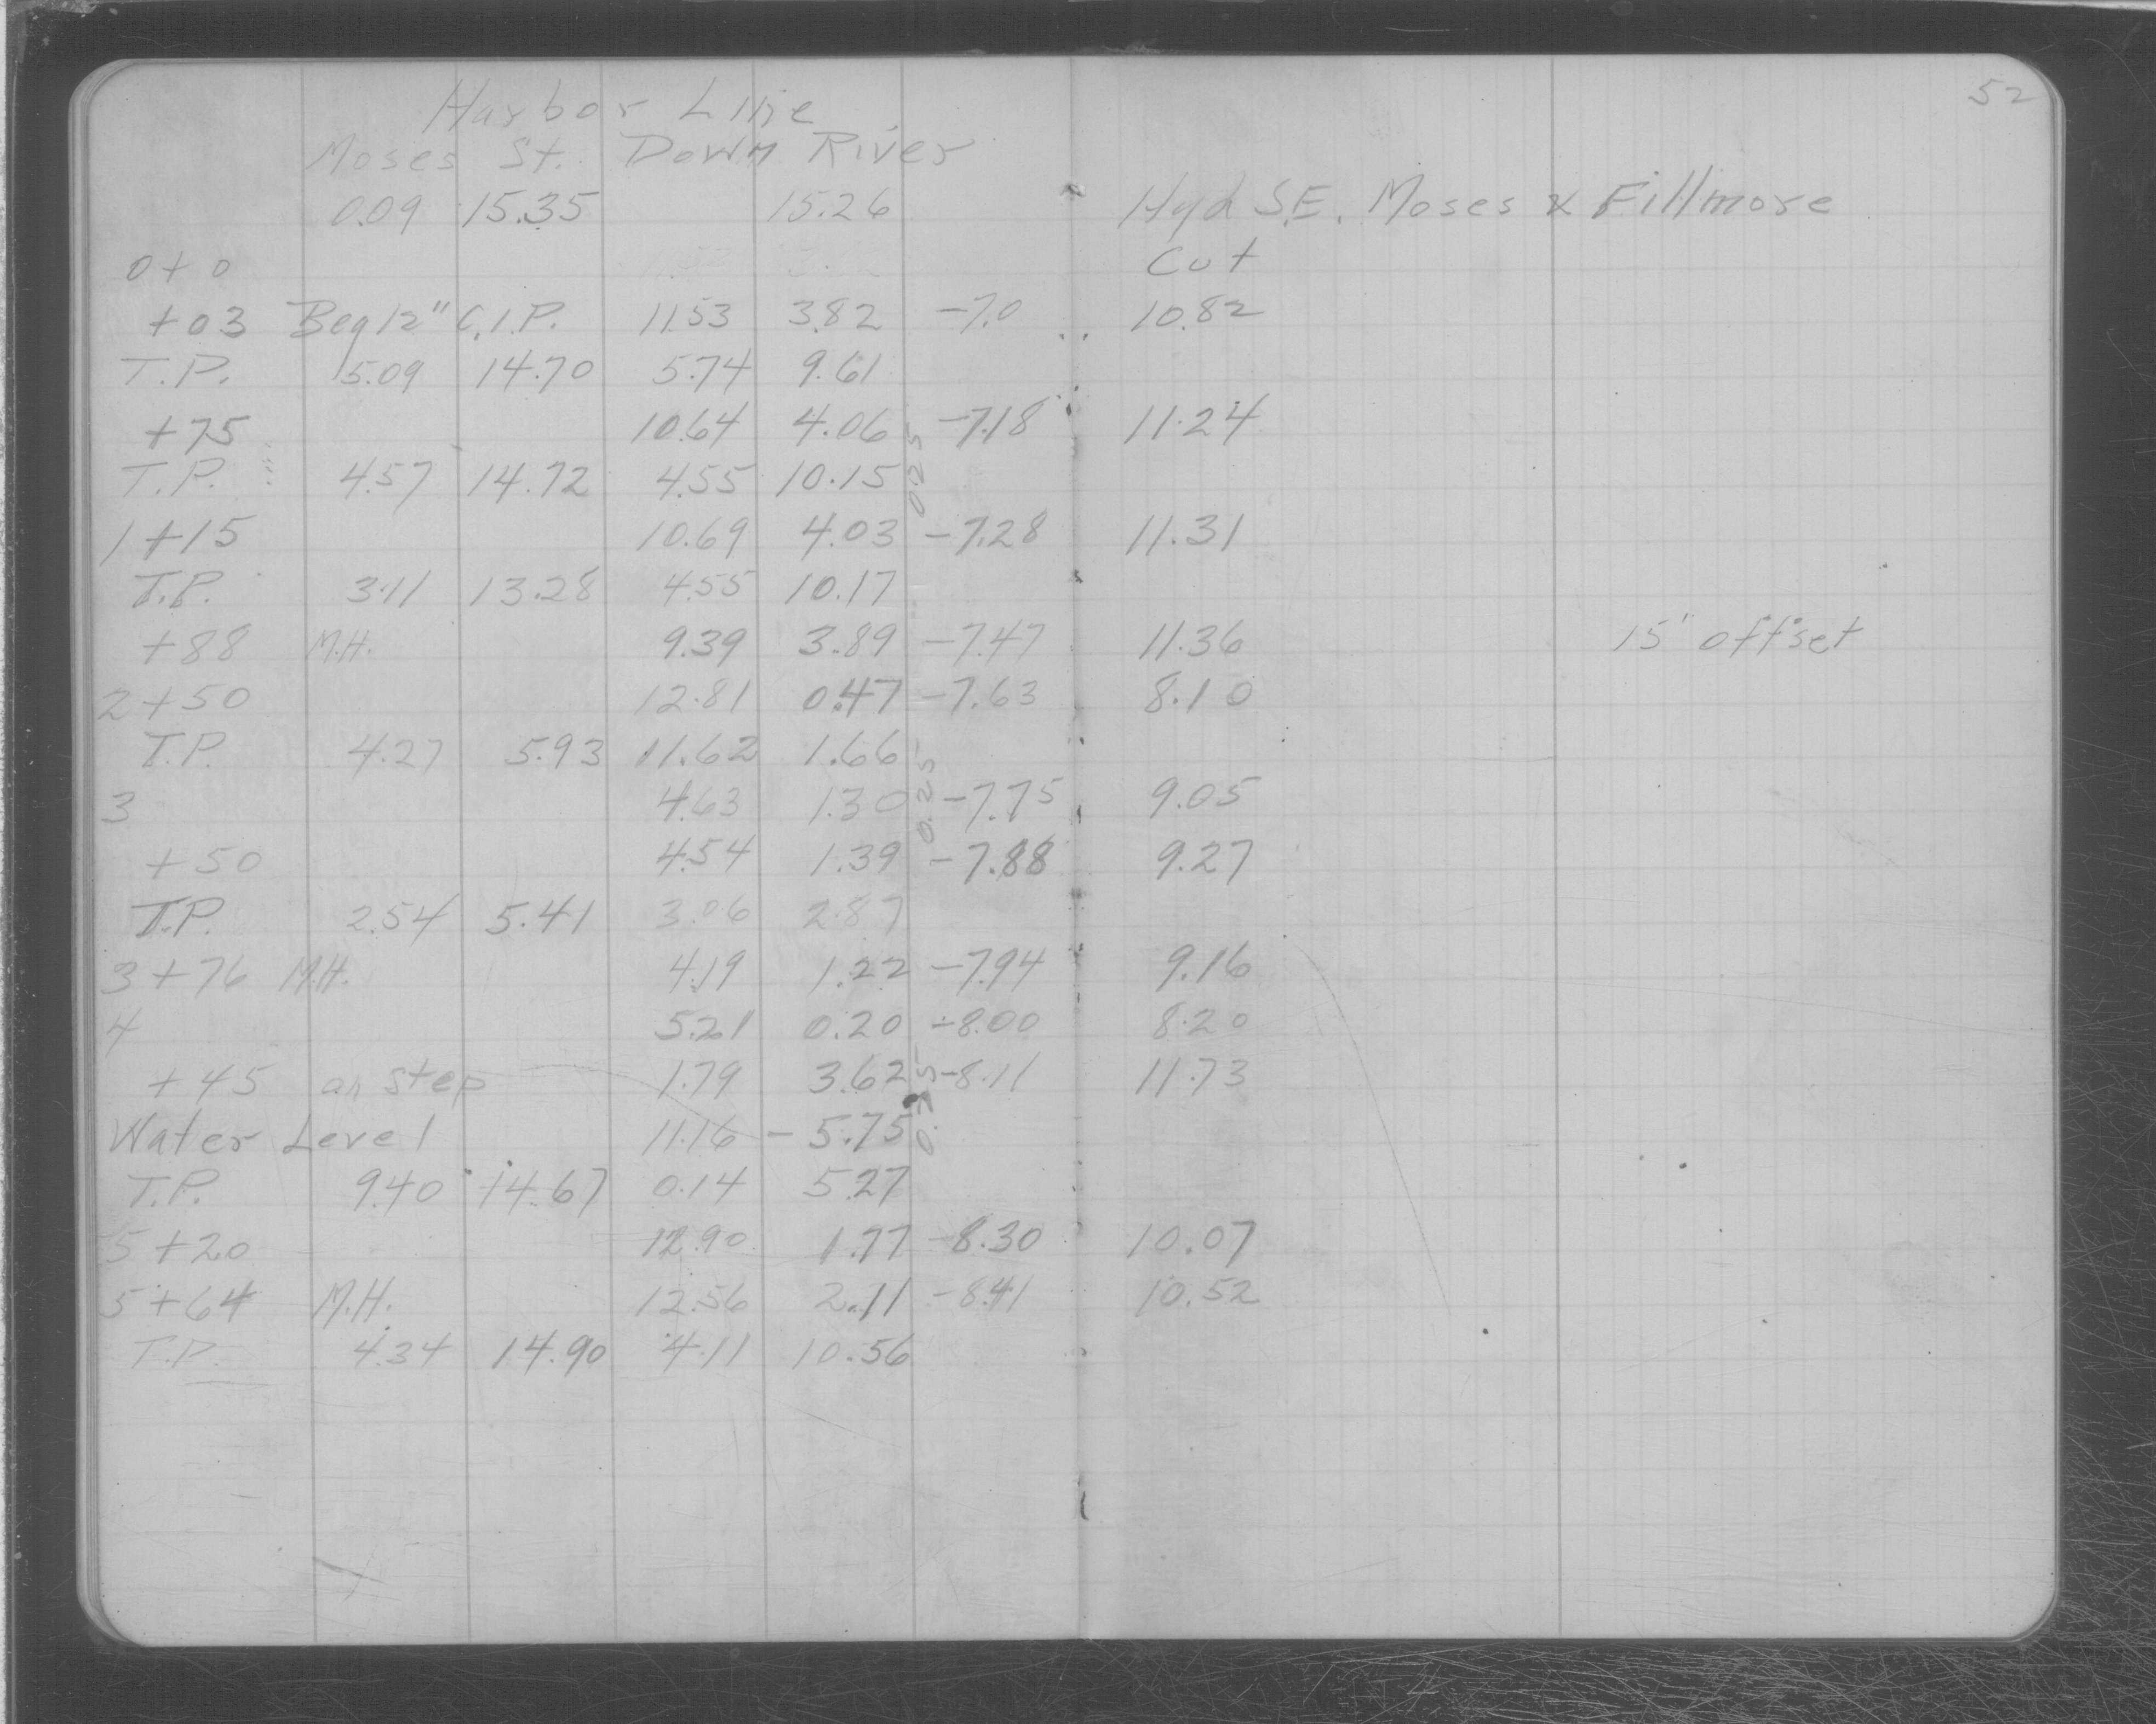 52
Harbor Line
Moses St. Down River
0.09 15.35 15.26 Hyd S.E. Moses x Fillmore
0+0 Cut
+03 Beg 12" C.I.P. 11.53 3.82 -7.0 10.82
T.P. 5.09 14.70 5.74 9.61
+75 10.64 4.06 -7.18 11.24
0.25
T.P. 4.57 14.72 4.55 10.15
1+15 10.69 4.03 -7.28 11.31
T.P. 3.11 13.28 4.55 10.17
+88 M.H. 9.39 3.89 -7.47 11.36 15" offset
2+50 12.81 0.47 -7.63 8.10
T.P. 4.27 5.93 11.62 1.66
0.25
3 4.63 1.30 -7.75 9.05
+50 4.54 1.39 -7.88 9.27
T.P. 2.54 5.41 3.06 2.87
3+76 M.H. 4.19 1.22 -7.94 9.16
4 5.21 0.20 -8.00 8.20
+45 on step 1.79 3.62 -8.11 11.73
0.25
Water Level 11.16 -5.75
T.P. 9.40 14.67 0.14 5.27
5+20 12.90 1.77 -8.30 10.07
5+64 M.H. 12.56 2.11 -8.41 10.52
T.P. 4.34 14.90 4.11 10.56